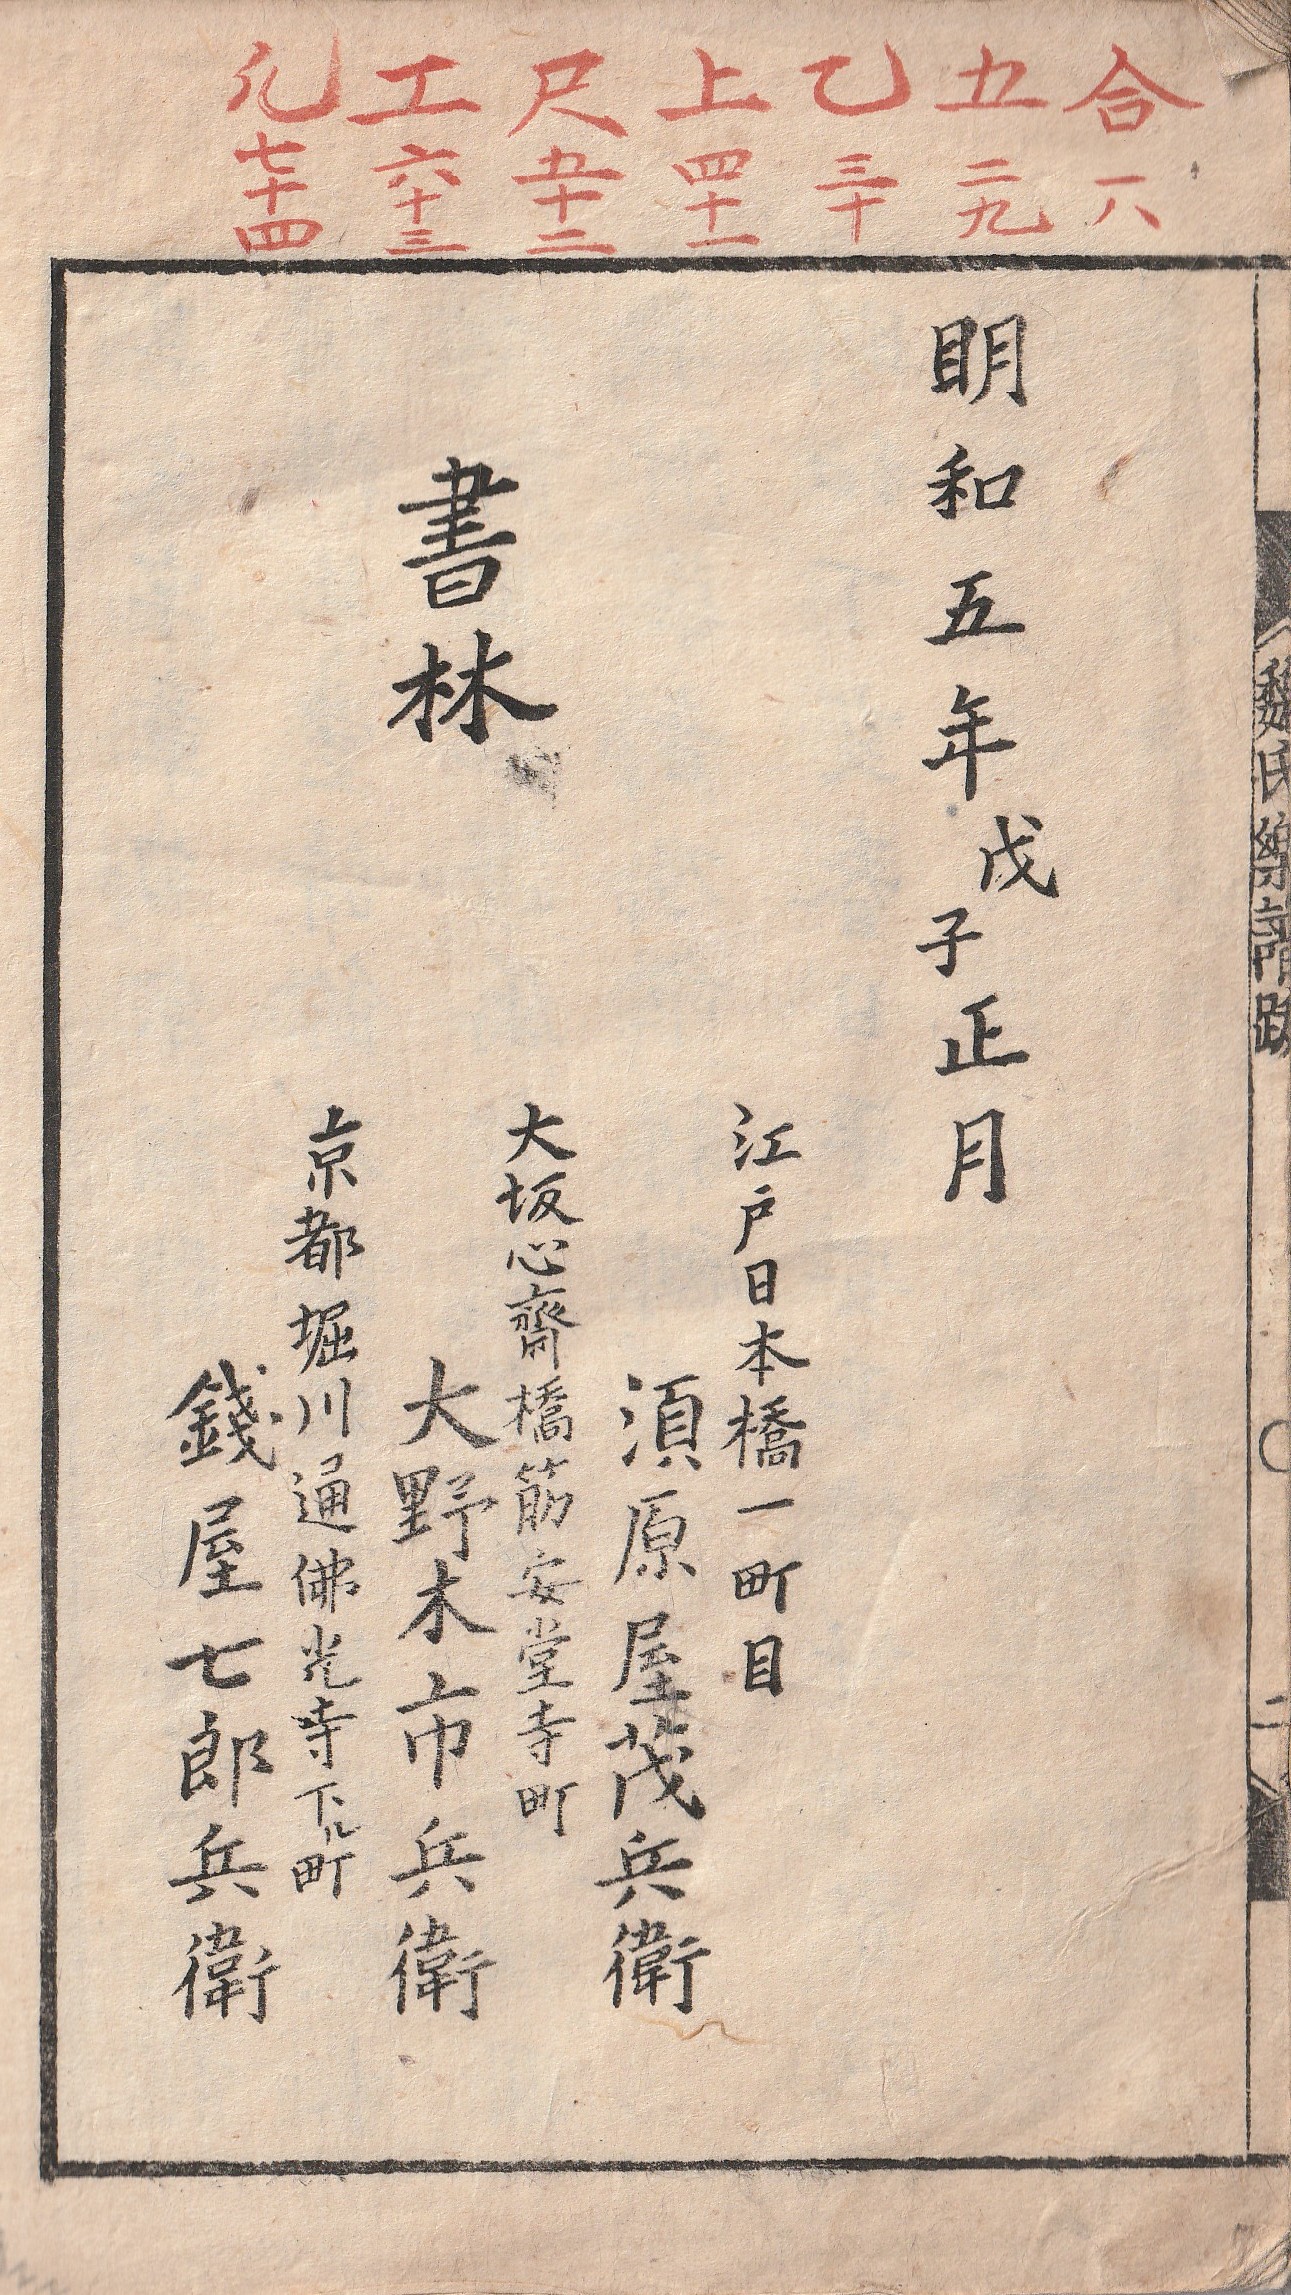 合 一八
五 二九
乙 三十
上 四十一
尺 五十二
工 六十三
凡 七十四
魏氏樂譜跋
二
明和五年戊子正月
江戸日本橋一町目
須原屋茂兵衛
大坂心齋橋筋安堂寺町
大野木市兵衛
書林
京都堀川通佛光寺下ル町
錢屋七郎兵衛